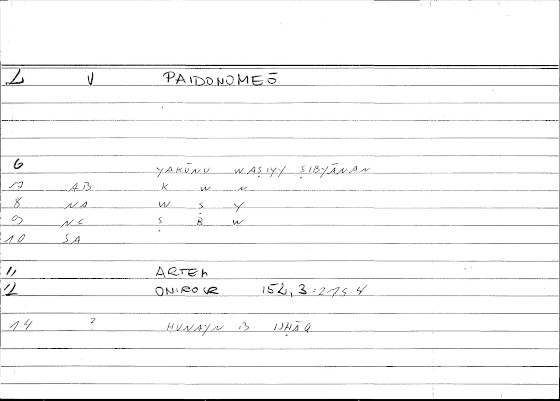 1 V PAIDONOMEŌ
6 YAKŪNU WAṢIYY ṢIBYĀNAN
7 AB K W N
8 NA W Ṣ Y
9 NC Ṣ B W
10 SA
11 ARTEM
12 ONIROCR 152, 3 = 275.4
14 ? ḤUNAYN B ISḤĀQ